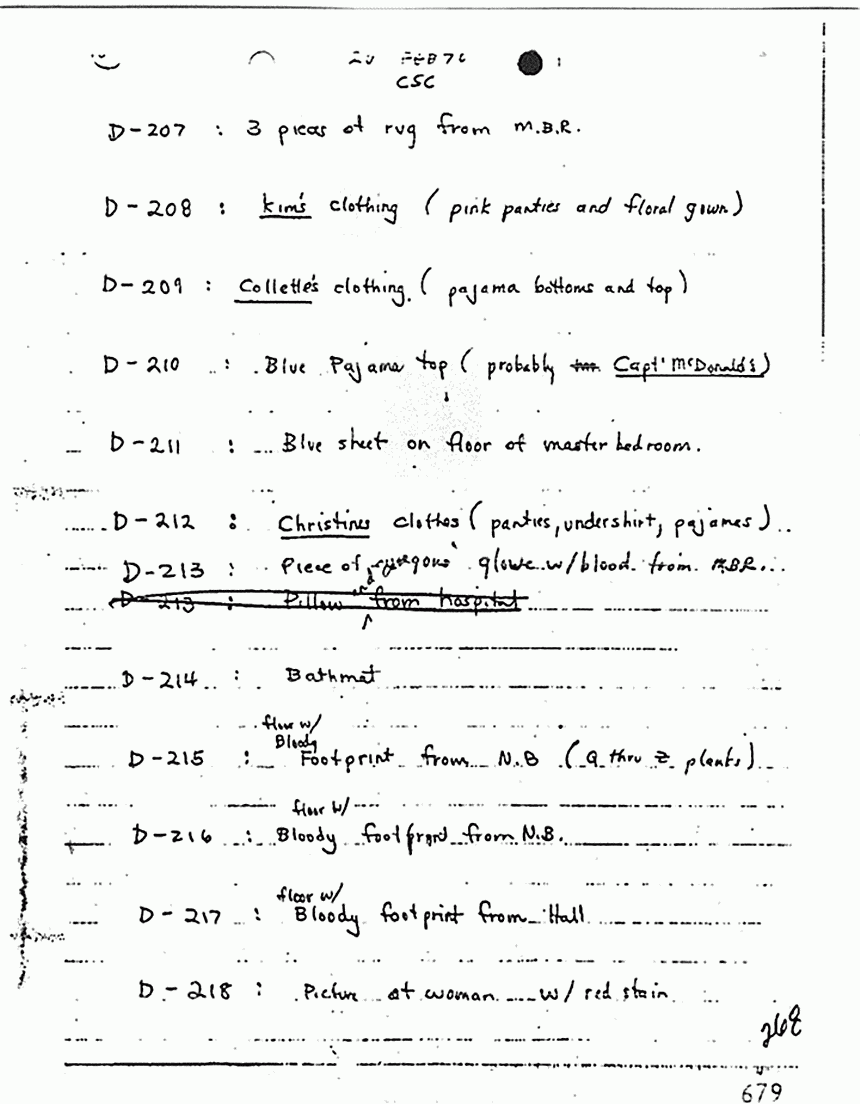 FEB 70
CSC
D-207 : 3 pieces of rug from M.B.R.
D-208 : Kim's clothing ( pink panties and floral gown )
D-209 : Collette's clothing. ( pajama bottoms and top )
D-210 : Blue Pajama top ( probably Capt' McDonald's )
D-211 : Blue sheet on floor of master bedroom.
D-212 : Christines clothes ( panties, undershirt, pajamas )
D-213 : Piece of surgeons' glove w/blood from M.B.R.
D-213 : Pillow from hospital
D-214 : Bathmat
floor w/
Bloody
D-215 : Footprint from N.B ( Q thru Z planks )
floor w/
D-216 : Bloody footprint from N.B.
floor w/
D-217 : Bloody footprint from Hall
D-218 : Picture of woman w/ red stain
268
679